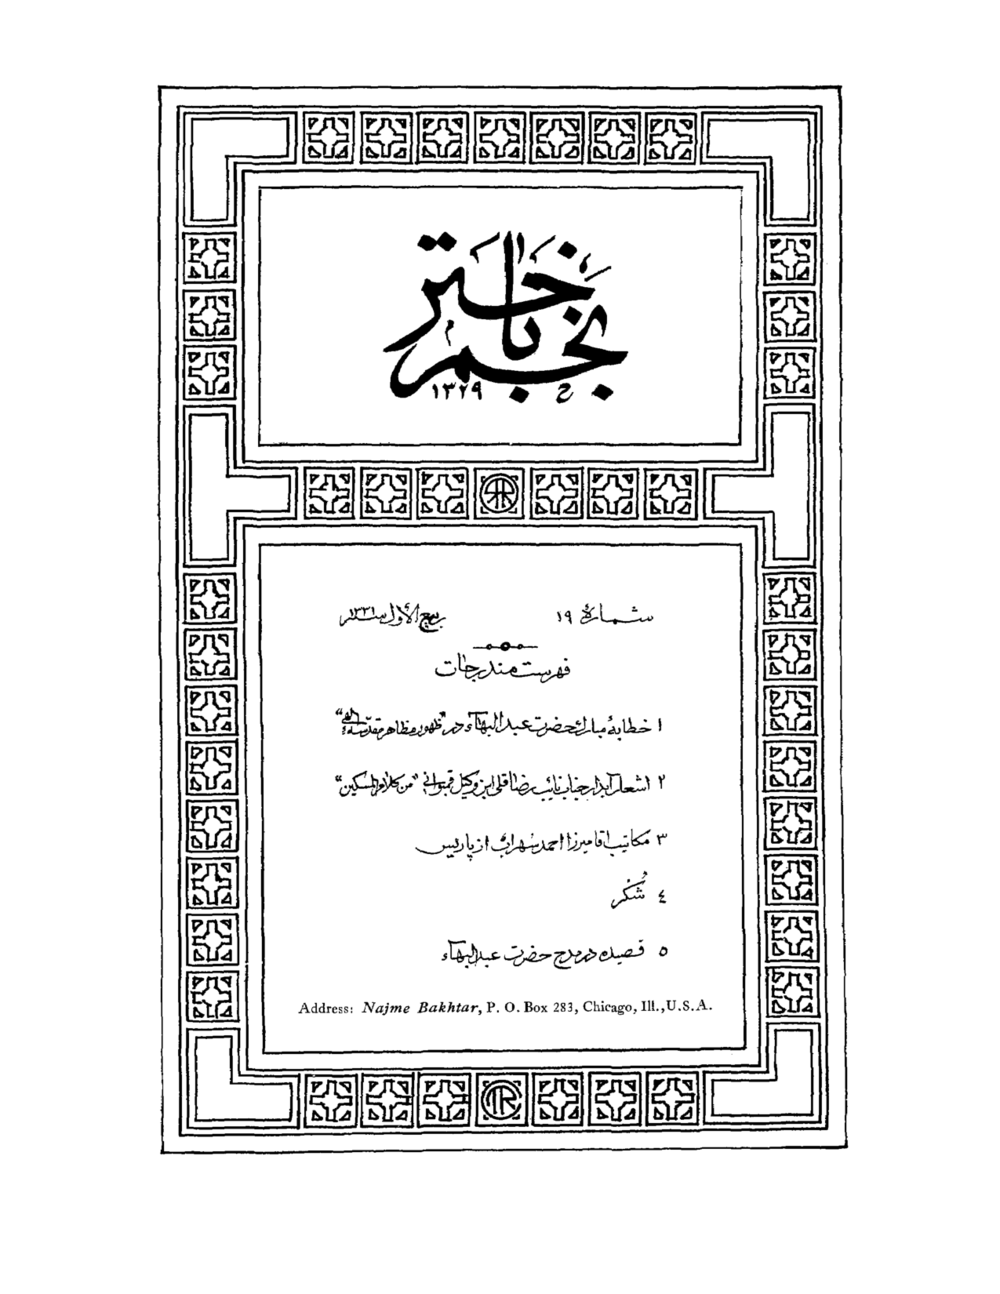 نجم باختر
۱۳۲۹
شمارهٔ ۱۹
ربیع الأوّل سنه ۱۳۳۱
فهرست مندرجات
۱ خطابهٔ مبارک حضرت عبدالبهآء در "ظهور مظاهر مقدّسه الهی"
۲ اشعار آبدار جناب نائب رضا قلی ابن وکیل "من کلام المسکین"
۳ مکاتیب آقا میرزا احمد سهراب از پاریس
٤ شکر
۵ قصیده در مدح حضرت عبدالبهآء
Address: Najme Bakhtar, P. O. Box 283, Chicago, Ill., U.S.A.